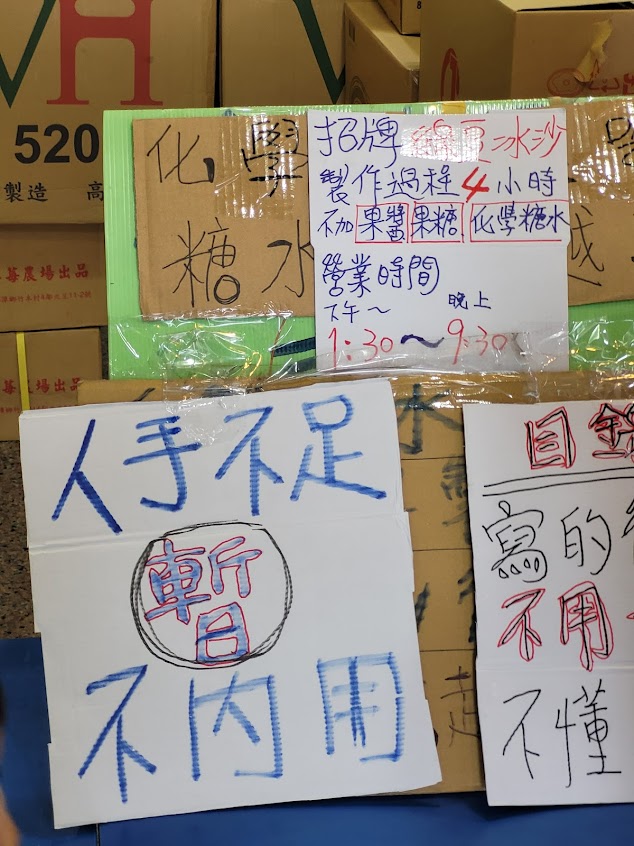 VH
520
製造 高
莓農場出品
莓農場出品
化學
糖水
招牌綠豆冰沙
製作過程4小時
不加果醬果糖化學糖水
營業時間
下午～ 晚上
1:30～9:30
人手不足
暫
不內用
水
目錄
寫的
不用
不懂